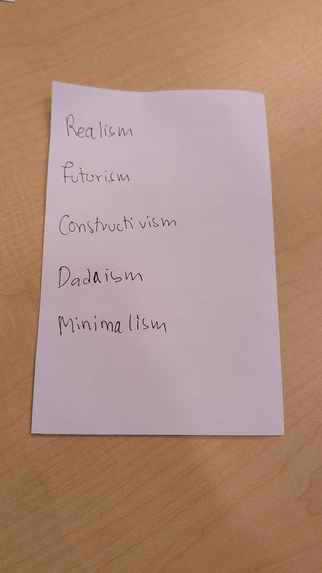 Realism
Futurism
Constructivism
Dadaism
Minimalism